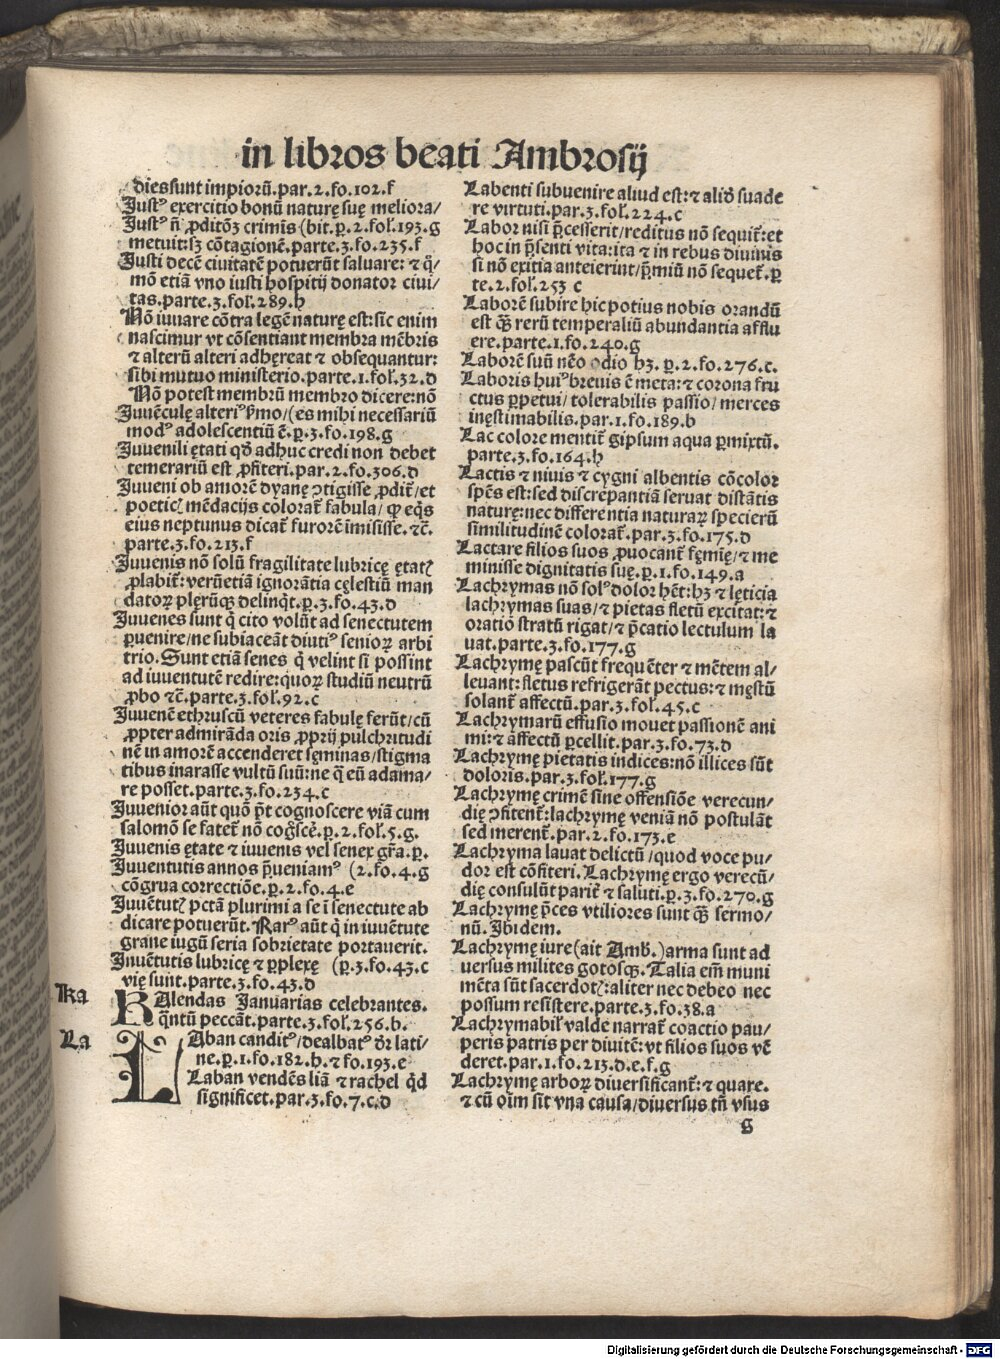 in libros beati Ambrosij
dies sunt impiorũ.par.2.fo.102.f
Justꝰ exercitio bonũ naturę suę meliora/
Justꝰ ñ ꝓditõꝫ crimis (bit.p̲.2.fol.193.g
metuit:sꝫ cõtagionẽ.parte.3.fo.235.f
Justi decẽ ciuitatẽ potuerũt saluare: ⁊ q̃/
mõ etiã vno iusti hospitij donator ciui/
tas.parte.3.fol.289.h
Nõ iuuare cõtra legẽ naturę est:sic enim
nascimur vt cõsentiant membra mẽbris
⁊ alterũ alteri adhęreat ⁊ obsequantur:
sibi mutuo ministerio.parte.1.fol.32.d
Nõ potest membrũ membro dicere:nõ
Juuẽculę alteriꝰ ẜmo/(es mihi necessariũ
modꝰ adolescentiũ ẽ.p̲.3.fo.198.g
Juuenili ętati qđ adhuc credi non debet
temerariũ est ꝓfiteri.par.2.fo.306.d
Juueni ob amorẽ dyanę ↄtigisse ꝓdit̃/et
poeticꝭ mẽdacijs colorat̃ fabula/ ꝙ eq̃s
eius neptunus dicat̃ furorẽ ĩmisisse.⁊c̃.
parte.3.fo.213.f
Juuenis nõ solũ fragilitate lubricę ętatꝭ
ꝓlabit̃:verũetiã ignorãtia cęlestiũ man
datoꝝ plęrũqꝫ delinq̃t.p̲.3.fo.43.d
Juuenes sunt q̃ cito volũt ad senectutem
p̲uenire/ne subiaceãt diutiꝰ senioꝝ arbi
trio.Sunt etiã senes q̃ velint si possint
ad iuuentutẽ redire:quoꝝ studiũ neutrũ
ꝓbo ⁊c̃.parte.3.fol.92.c
Juuenẽ ethruscũ veteres fabulę ferũt/cũ
ꝓpter admirãda oris ꝓprij pulchritudi
nẽ in amorẽ accenderet fęminas/stigma
tibus inarasse vultũ suũ:ne q̃ eũ adama/
re posset.parte.3.fo.234.c
Juuenior aũt quõ p̃t cognoscere viã cum
salomõ se fatet̃ nõ cog̃scẽ.p̲.2.fol.5.g.
Juuenis ętate ⁊ iuuenis vel senex gr̃a.p̲.
Juuentutis annos p̃ueniamꝰ (2.fo.4.g
cõgrua correctiõe.p̲.2.fo.4.e
Juuẽtutꝭ pctã plurimi a se ĩ senectute ab
dicare potuerũt. Rarꝰ aũt q̃ in iuuẽtute
graue iugũ seria sobrietate portauerit.
Juuẽtutis lubricę ⁊ p̲plexę (p̲.3.fo.43.c
vię sunt.parte.3.fo.43.d
Ka
KAlendas Januarias celebrantes.
q̃ntũ peccãt.parte.3.fol.256.b.
La
LAban canditꝰ/dealbatꝰ dr̃ lati/
ne.p̲.1.fo.182.h.⁊ fo.193.e
Laban vendẽs liã ⁊ rachel q̃d
significet.par.3.fo.7.c.d
Labenti subuenire aliud est:⁊ aliđ suade
re virtuti.par.3.fol.224.c
Labor nisi p̃cesserit/reditus nõ sequit̃:et
hoc in p̃senti vita:ita ⁊ in rebus diuinis
si nõ exitia anteierint/p̃miũ nõ sequet̃.p̲
te.2.fol.253 c
Laborẽ subire hic potius nobis orandũ
est q̃ꝫ rerũ temperaliũ abundantia afflu
ere.parte.1.fo.240.g
Laborẽ suũ nẽo odio hꝫ. p̲.2.fo.276.c.
Laboris huiꝰ breuis ẽ meta:⁊ corona fru
ctus p̲petui/ tolerabilis passio/ merces
inęstimabilis.par.1.fo.189.b
Lac colore mentit̃ gipsum aqua p̲mixtũ.
parte.3.fo.164.h
Lactis ⁊ niuis ⁊ cygni albentis cõcolor
spẽs est:sed discrepantiã seruat distãtis
naturę:nec differentia naturaꝝ specierũ
similitudinẽ colorat̃.par.3.fo.175.d
Lactare filios suos ꝓuocant̃ fęmię/⁊ me
minisse dignitatis suę.p̲.1.fo.149.a
Lachrymas nõ solꝰ dolor hẽt:hꝫ ⁊ lęticia
lachrymas suas/⁊ pietas fletũ excitat:⁊
oratio stratũ rigat/⁊ p̃catio lectulum la
uat.parte.3.fo.177.g
Lachrymę pascũt frequẽter ⁊ mẽtem al/
leuant:fletus refrigerãt pectus:⁊ męstũ
solant̃ affectũ.par.3.fol.45.c
Lachrymarũ effusio mouet passionẽ ani
mi:⁊ affectũ p̲cellit.par.3.fo.73.d
Lachrymę pietatis indices:nõ illices sũt
doloris.par.3.fol.177.g
Lachrymę crimẽ sine offensiõe verecun/
dię ↄfitent̃:lachrymę veniã nõ postulãt
sed merent̃.par.2.fo.173.e
Lachryma lauat delictũ /quod voce pu/
dor est cõfiteri.Lachrymę ergo verecũ/
dię consulũt parit̃ ⁊ saluti.p̲.3.fo.270.g
Lachrymę p̃ces vtiliores sunt q̃ꝫ sermo/
nũ. Ibidem.
Lachrymę iure(ait Amb.)arma sunt ad
uersus milites gotosqꝫ. Talia em̃ muni
mẽta sũt sacerdotꝭ:aliter nec debeo nec
possum resistere.parte.3.fo.38.a
Lachrymabil̃ valde narrat̃ coactio pau/
peris patris per diuitẽ:vt filios suos vẽ
deret.par.1.fo.213.d.e.f.g
Lachrymę arboꝝ diuersificant̃:⁊ quare.
⁊ cũ oĩm sit vna causa/diuersus tñ vsus
g
Digitalisierung gefördert durch die Deutsche Forschungsgemeinschaft - DFG